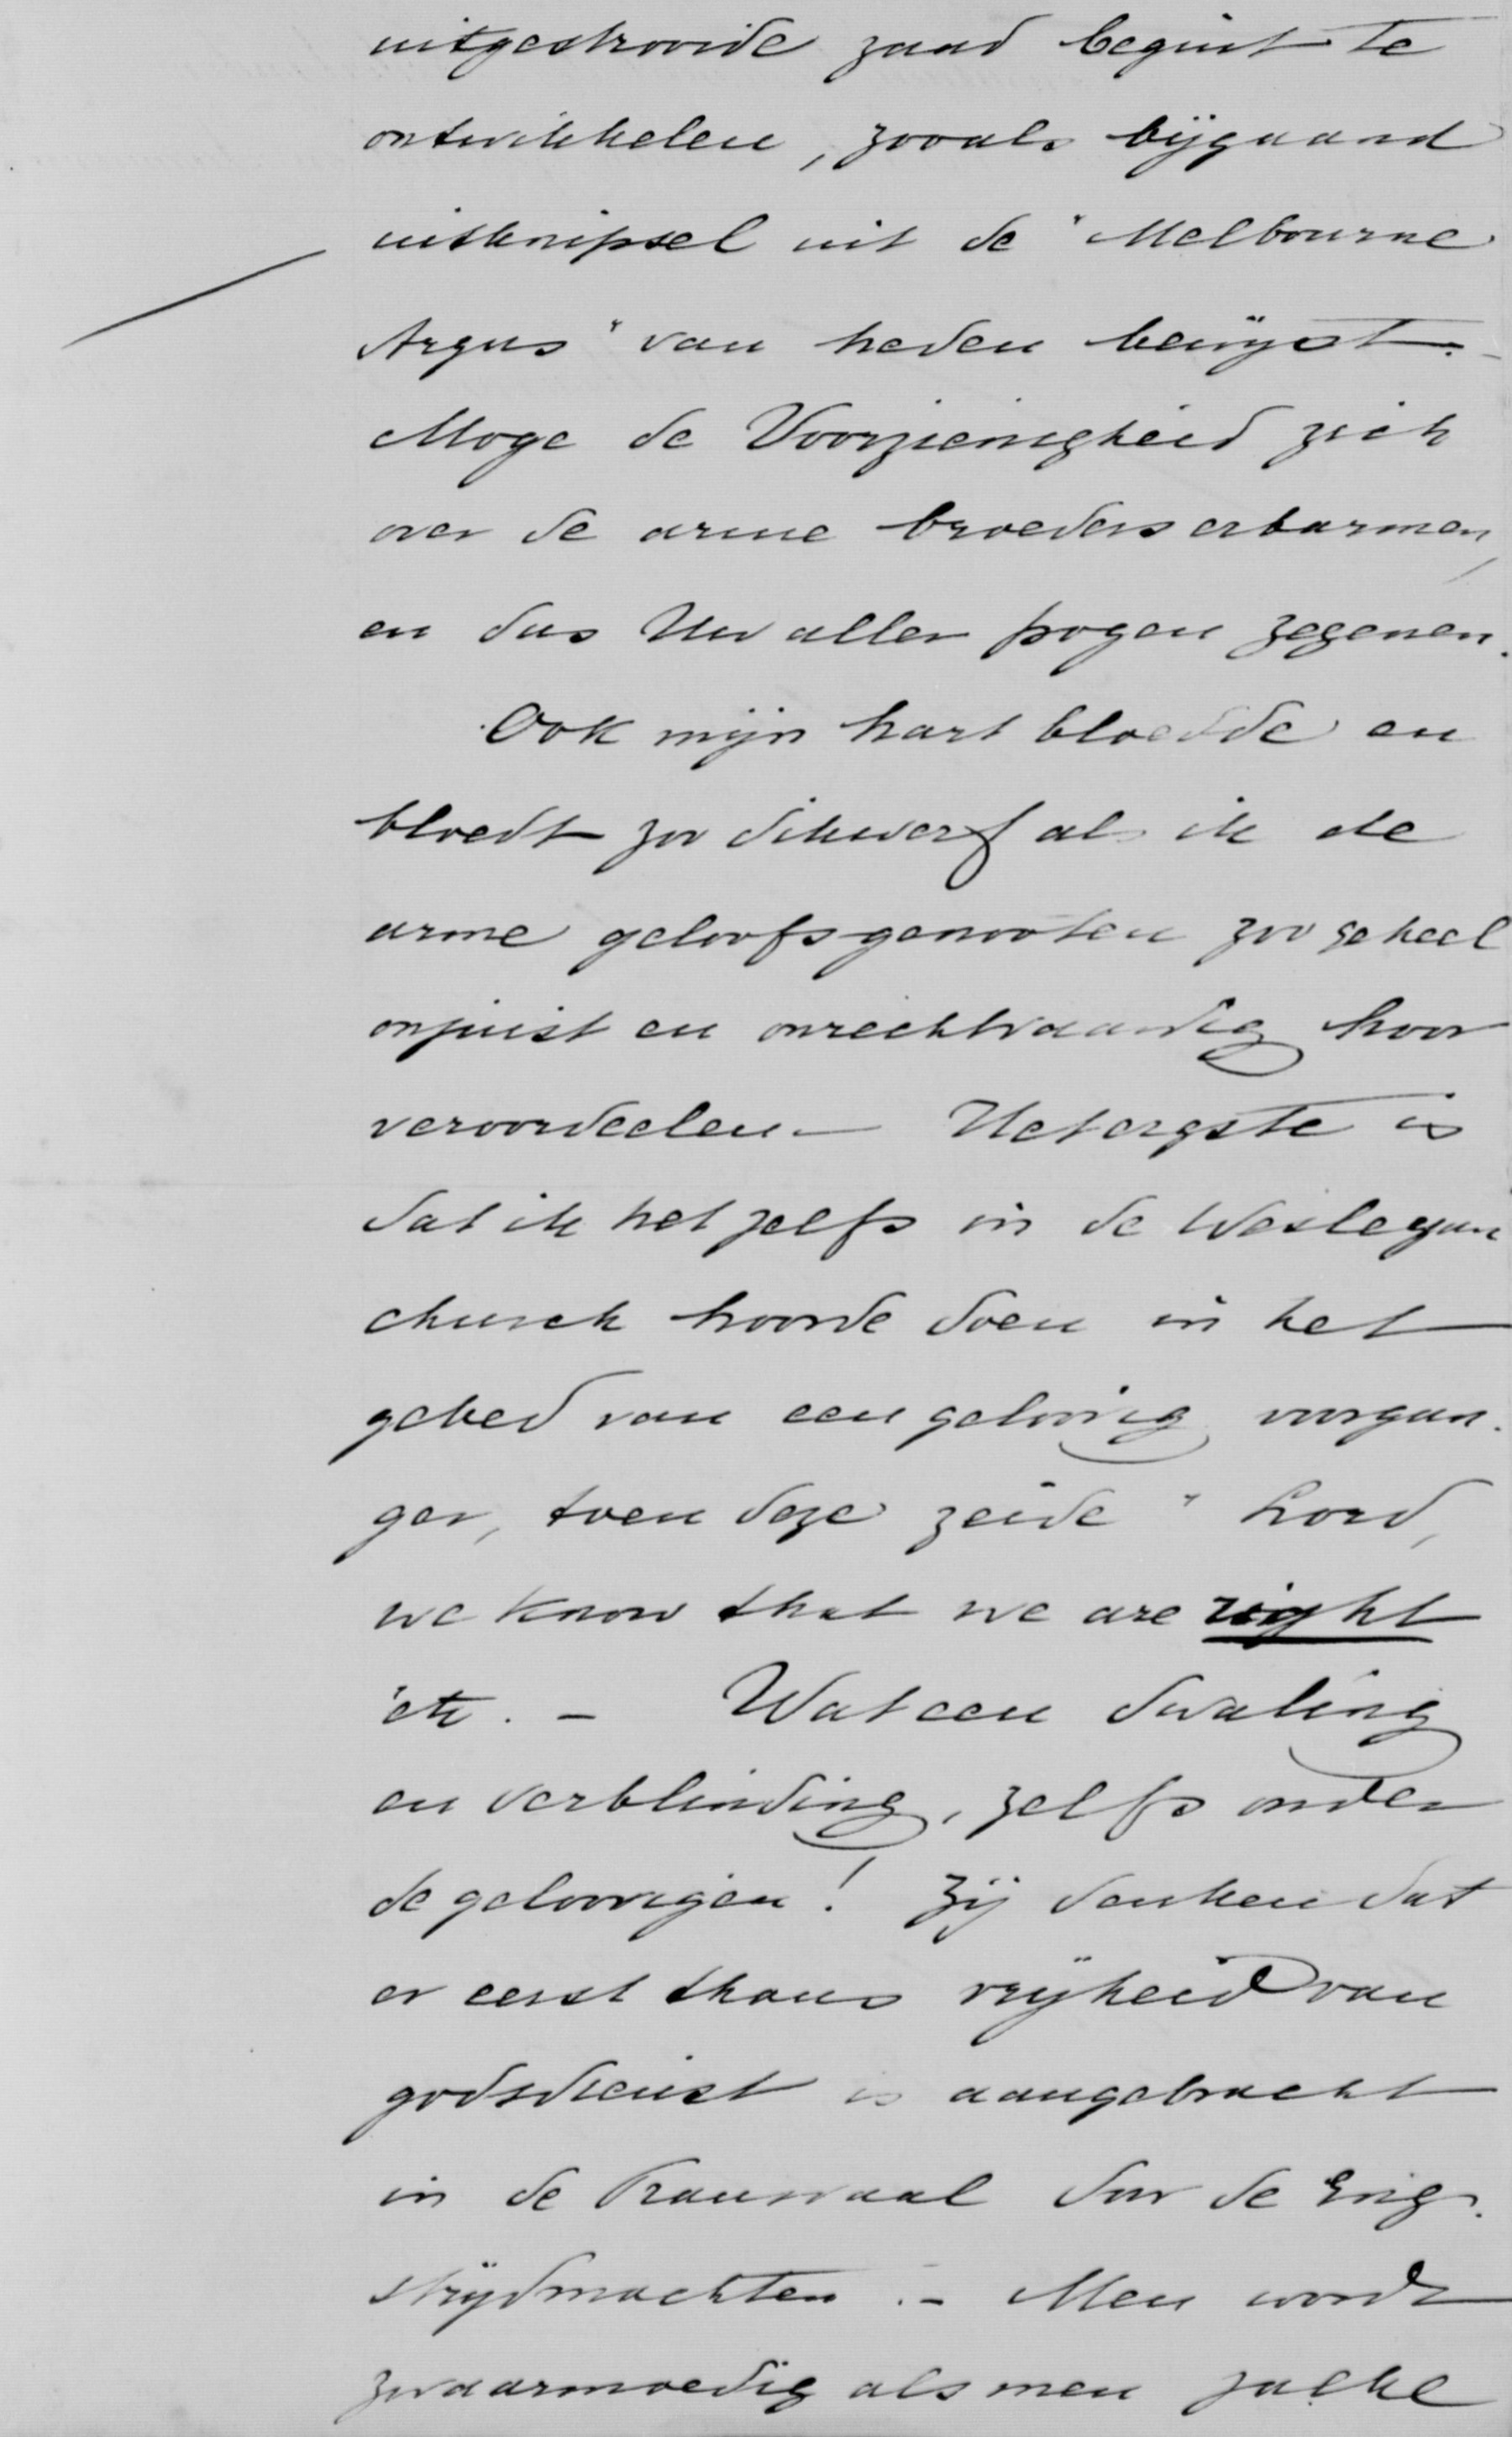 uitgestrooide zaad begint te
ontwikkelen, zooals bijgaand
uitknipsel uit de "Melbourne
Argus" van heden bewijst.-
Moge de Voorzienigheid zich
over de arme broeders erbarmen,
en dus Uw aller pogen zegenen.
Ook mijn hart bloedde en
bloedt zoo dikwerf als ik de
arme geloofsgenooten zoo geheel
onjuist en onrechtvaardig hoor
veroordeelen - Het ergste is
dat ik het zelfs in de Wesleyan
church hoorde doen in het
gebed van een geloovig voorgan-
ger, toen deze zeide "Lord,
we know that we are right
"etc. - Wat een dwaling
en verblinding, zelfs onder
de geloovigen! Zij denken dat
er eerst thans vrijheid van
godsdienst is aangebracht
in de Transvaal door de Eng.
strijdmachten .- Men wordt
zwaarmoedig als men zulke